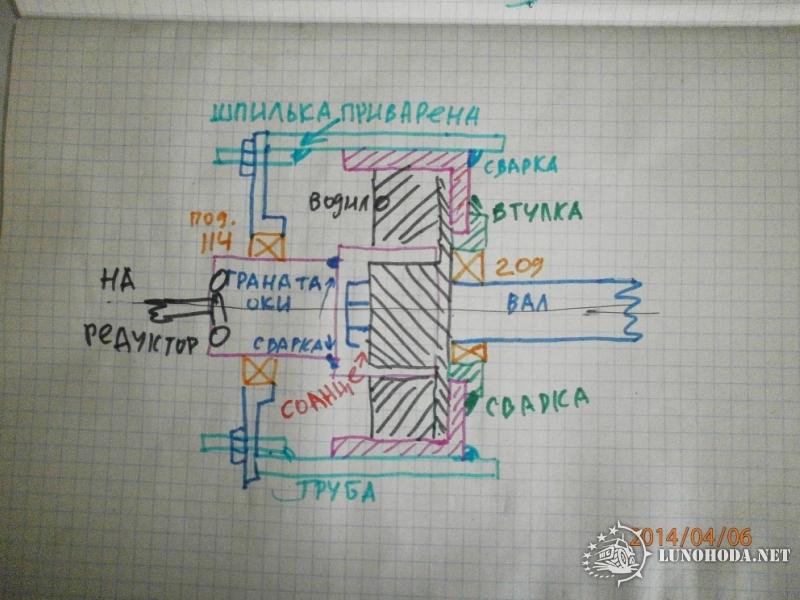 ШПИЛЬКА ПРИВАРЕНА
СВАРКА
ВОДИЛО
ВТУЛКА
ПОД.
114
209
НА
ГРАНАТА
ОКИ
ВАЛ
РЕДУКТОР
СВАРКА
СОЛНЦЕ
СВАРКА
ТРУБА
2014/04/06
LUNOHODA.NET